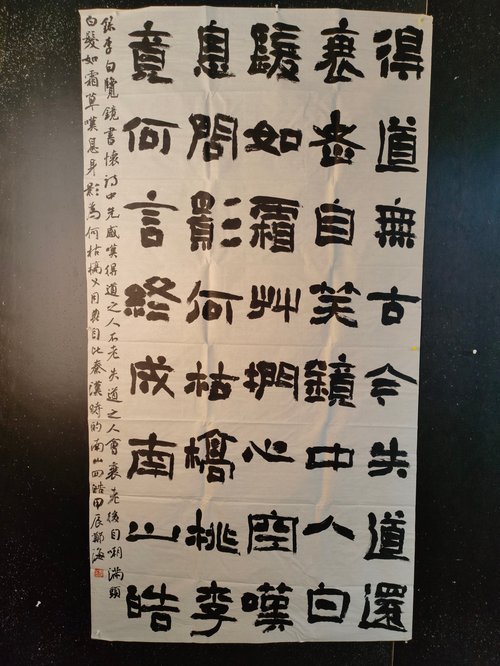 得道無古今失道還
衰老自笑鏡中人白
髮如霜艸捫心空嘆
息問影何枯槁桃李
竟何言終成南山皓
錄李白覽鏡書懷詩中先感嘆得道之人不老失道之人會衰老後自嘲滿頭
白髮如霜草嘆息身影為何枯槁又用典自比秦漢時的南山四皓甲辰鄭海